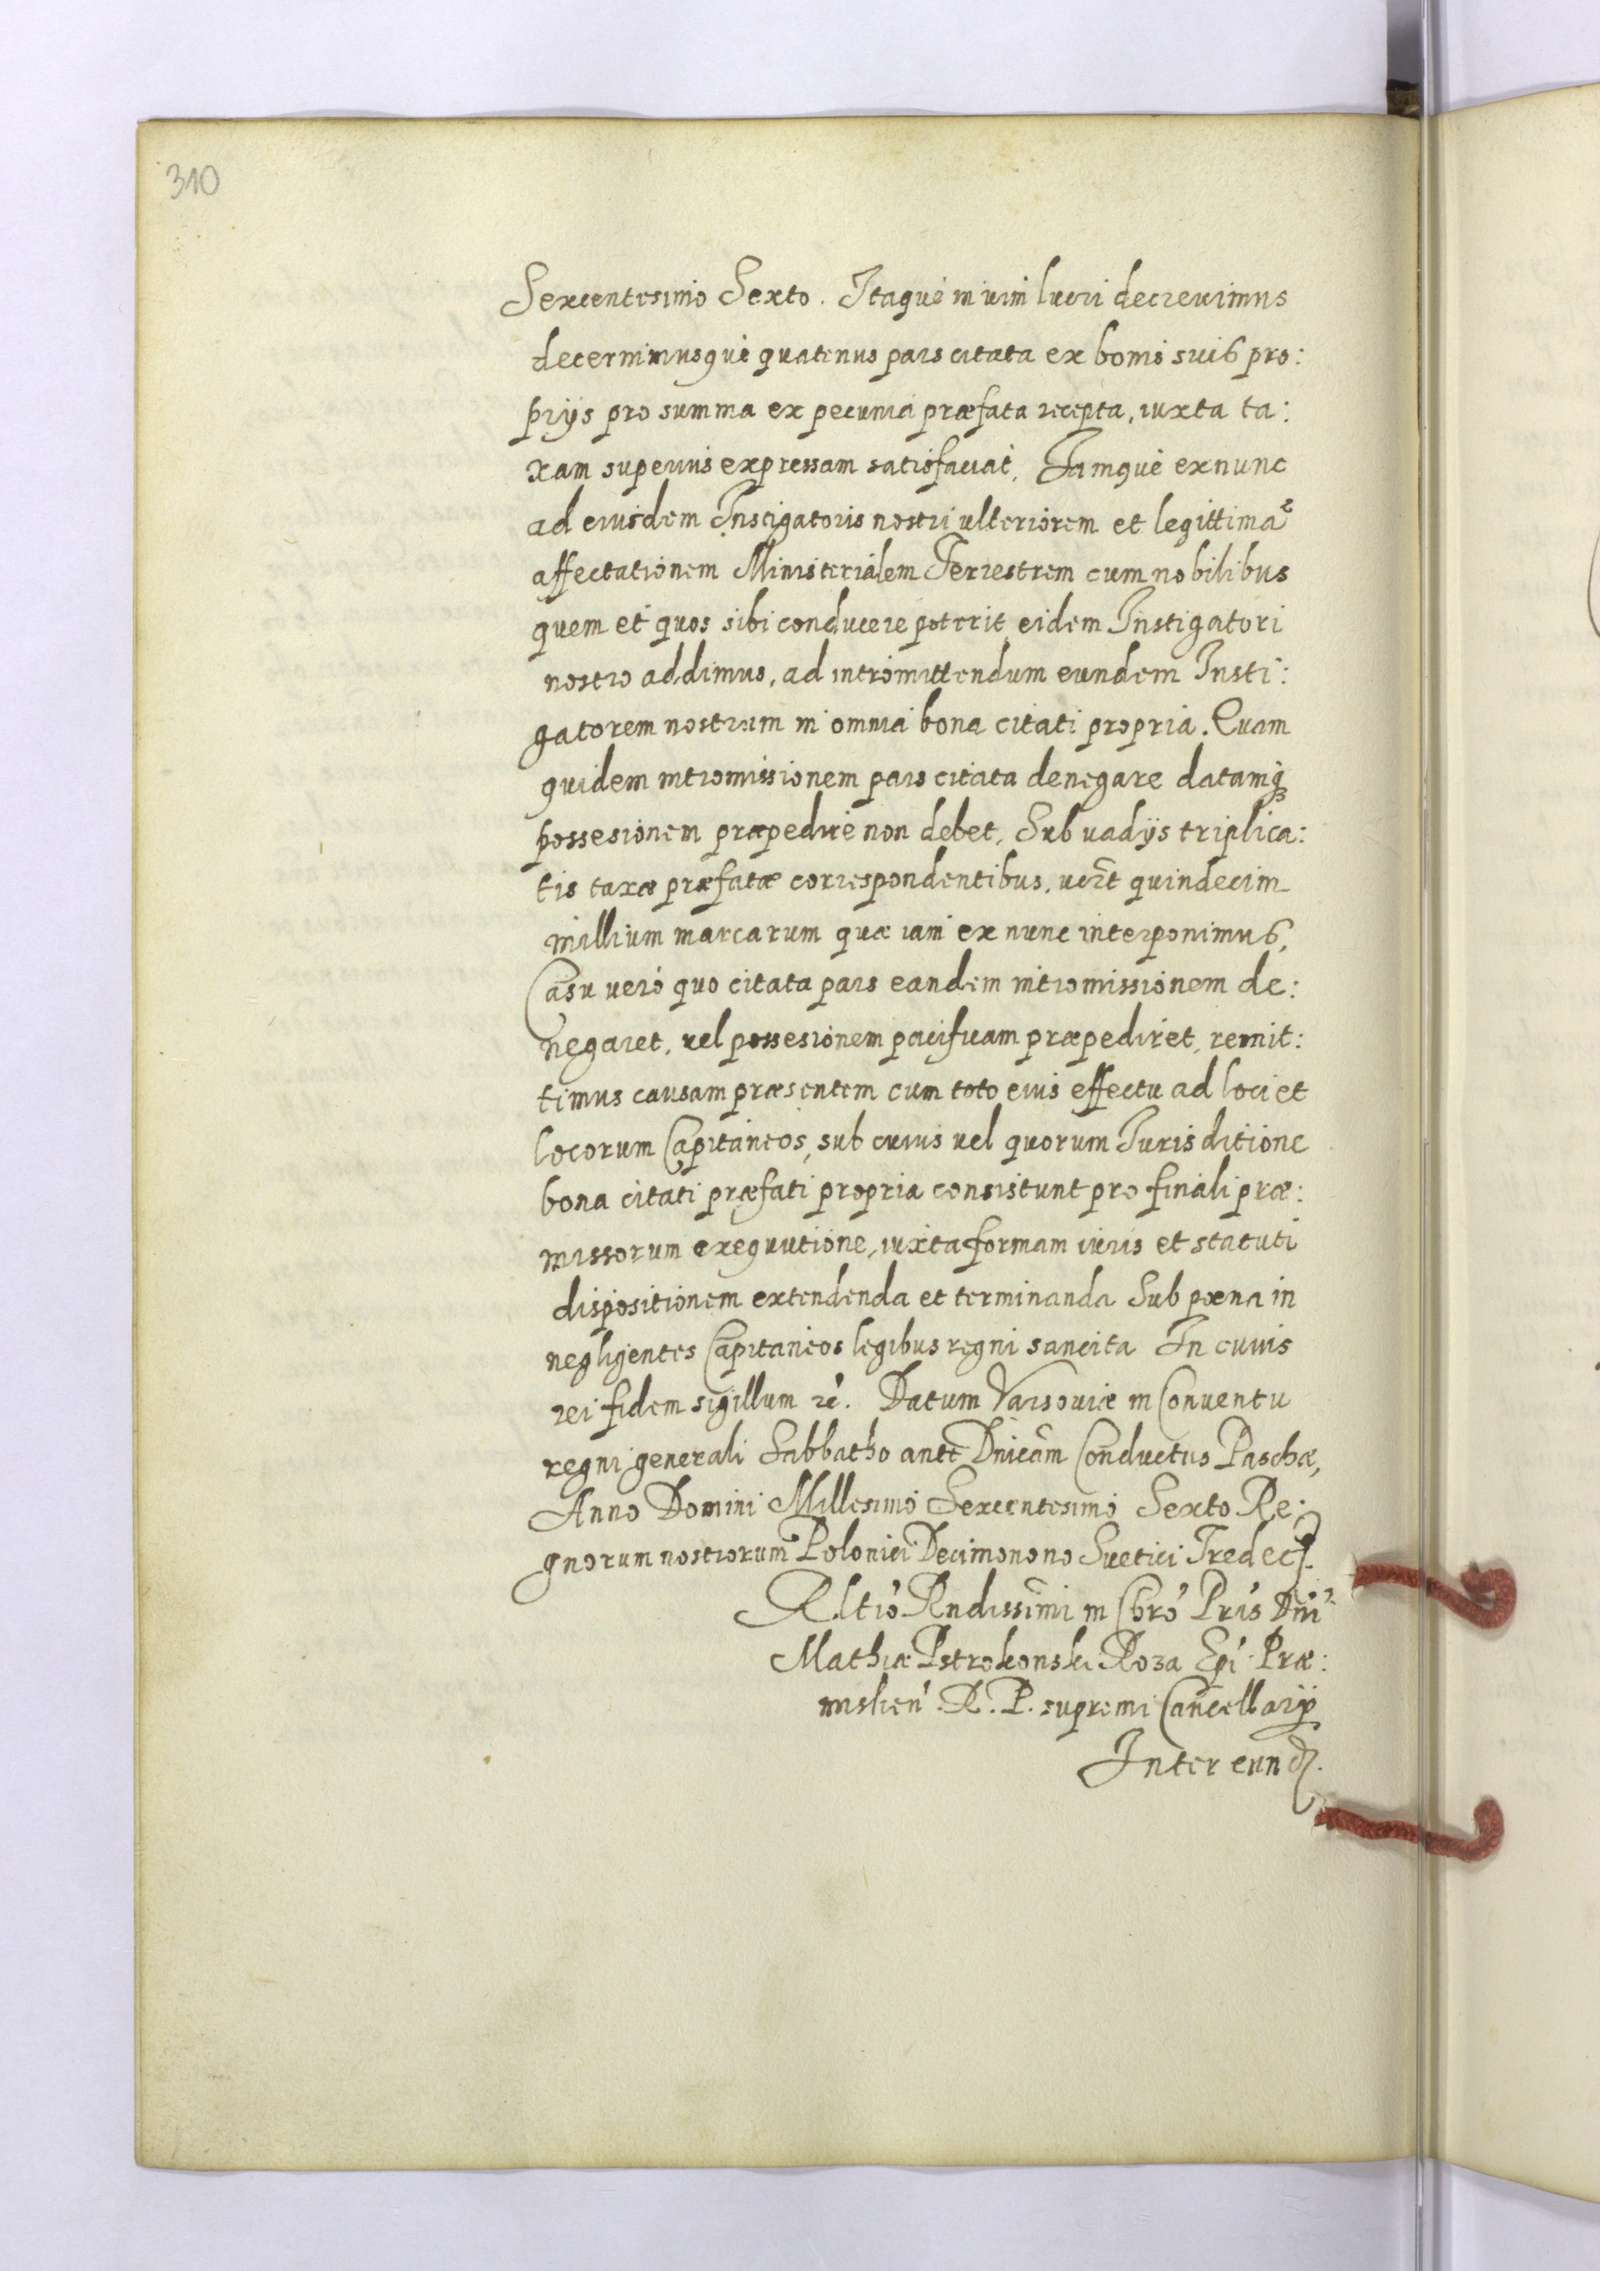 310
Sexcentesimo Sexto. Itaque in vim lucri decreuimus
decernimusque quatenus pars citata ex bonis suis pro:
prijs pro summa ex pecunia præfata recepta, iuxta ta:
xam superius expressam satisfaciat, Iamque ex nunc
ad eiusdem Instigatoris nostri ulteriorem et legittimã
affectationem Ministerialem Terrestrem cum nobilibus
quem et quos sibi conducere poterit eidem Instigatori
nostro addimus, ad intromittendum eundem Insti:
gatorem nostrum in omnia bona citati propria. Quam
quidem intromissionem pars citata denegare datamq3
possesionem præpedire non debet, Sub vadijs triplica:
tis taxæ præfatæ correspondentibus, uczt quindecim
millium marcarum quæ iam ex nunc interponimus,
Casu vero quo citata pars eandem intromissionem de:
negaret, vel possesionem pacificam præpediret, remit:
timus causam præsentem cum toto eius effectu ad loci et
locorum Capitaneos, sub cuius vel quorum Jurisditione
bona citati præfati propria consistunt pro finali præ:
missorum exequutione, iuxta formam iuris et statuti
dispositionem extendenda et terminanda Sub pœna in
negligentes Capitaneos legibus regni sancita In cuius
rei fidem sigillum rẽ. Datum Varsoviæ in Conventu
regni generali Sabbatho ante Dnicãm Conductus Paschæ,
Anno Domini Millesimo Sexcentesimo Sexto Re:
gnorum nostrorum Polonici Decimonono Suetici Tredec.
Rltio Rndissimi in Chro Pris Dni
Mathiæ Pstrokonski Roza Epi Præ:
mislien. R. P. supremi Cancellarij
Inter eund.